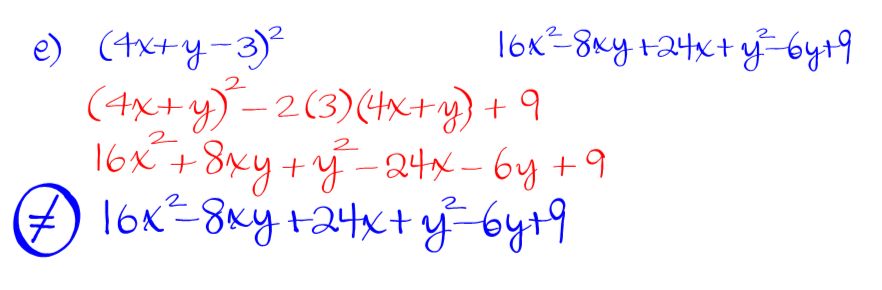 e) (4x+y-3)² 16x²-8xy+24x+y²-6y+9
(4x+y)²-2(3)(4x+y)+9
16x²+8xy+y²-24x-6y+9
≠ 16x²-8xy+24x+y²-6y+9